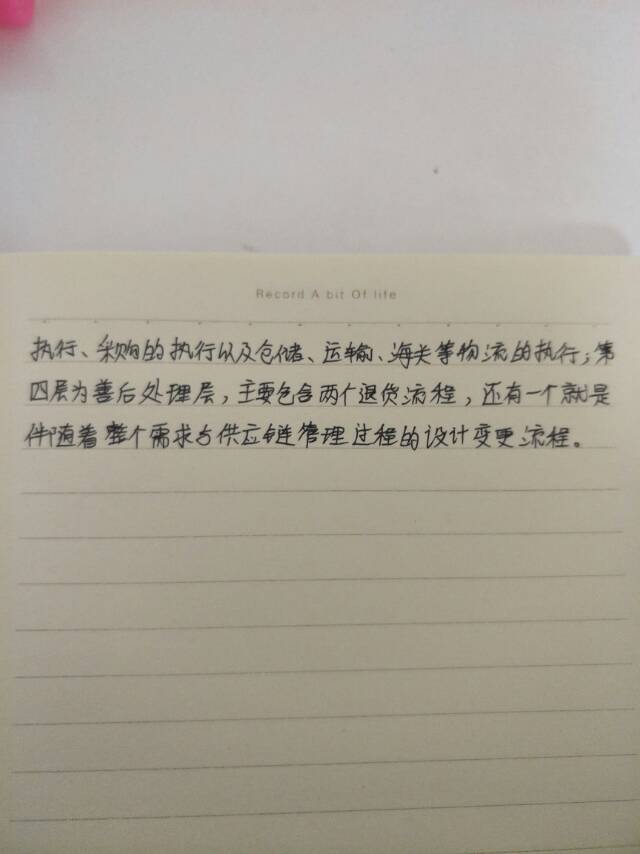 Record A bit Of life
执行、采购的执行以及仓储、运输、海关等物流的执行；第
四层为善后处理层，主要包含两个退货流程，还有一个就是
伴随着整个需求与供应链管理过程的设计变更流程。